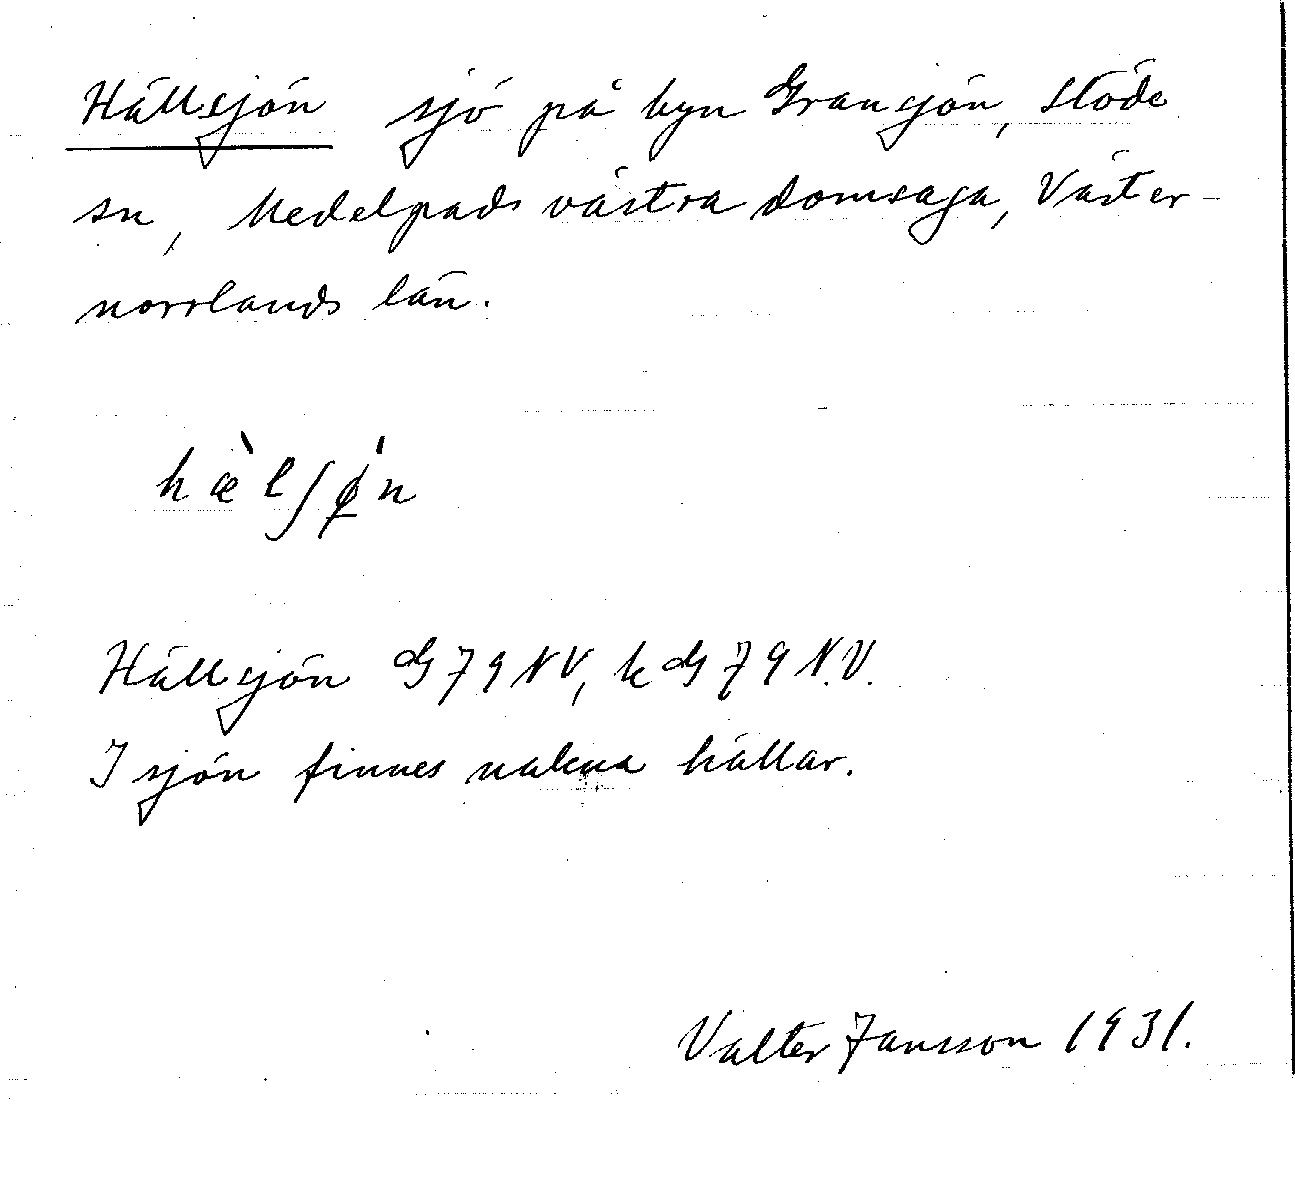 Hällsjön sjö på byn Gransjön, Stöde
sn, Medelpads västra domsaga, Väster-
norrlands län.
hæ̀lʃǿn
Hällsjön G 79 NV, k G 79 N.V.
I sjön finnes nakna hällar.
Valter Jansson 1931.